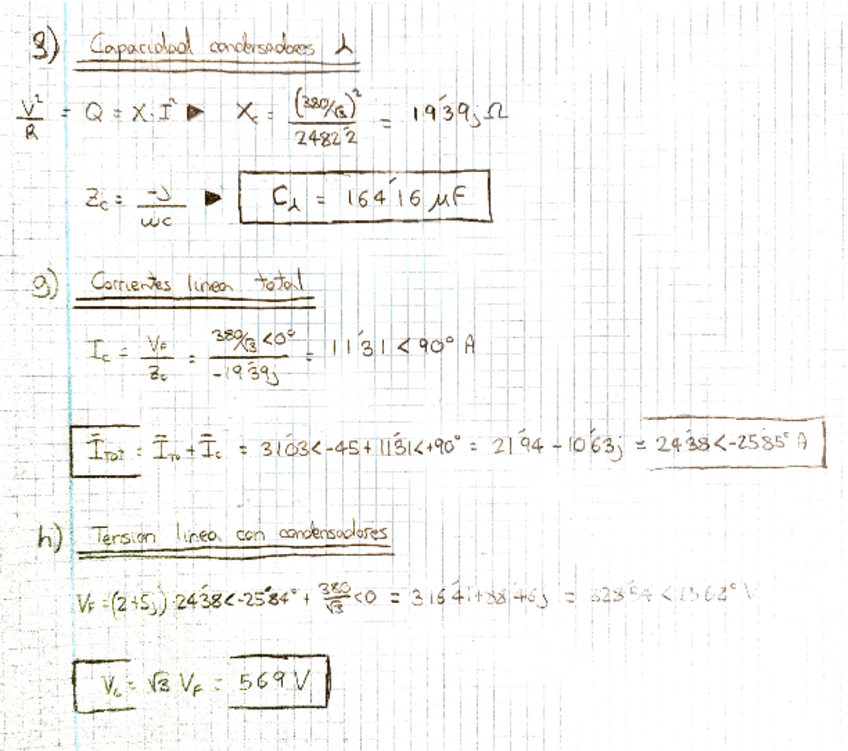 g) Capacidad condensadores λ
V²/R = Q = X·I² ► Xc = (380/√3)²/2482'2 = 19'39j Ω
Zc = -J/ωC ► Cλ = 164'16 μF
g) Corrientes linea total
Ic = VF/Zc = 380/√3<0°/-19'39j = 11'31<90° A
ĪTOT = ĪTO + Īc = 31'03<-45+11'31<+90° = 21'94 - 10'63j = 24'38<-25'85° A
h) Tension linea con condensadores
VF = (2+5j)·24'38<-25'84° + 380/√3<0 =
VL = √3 VF = 569 V